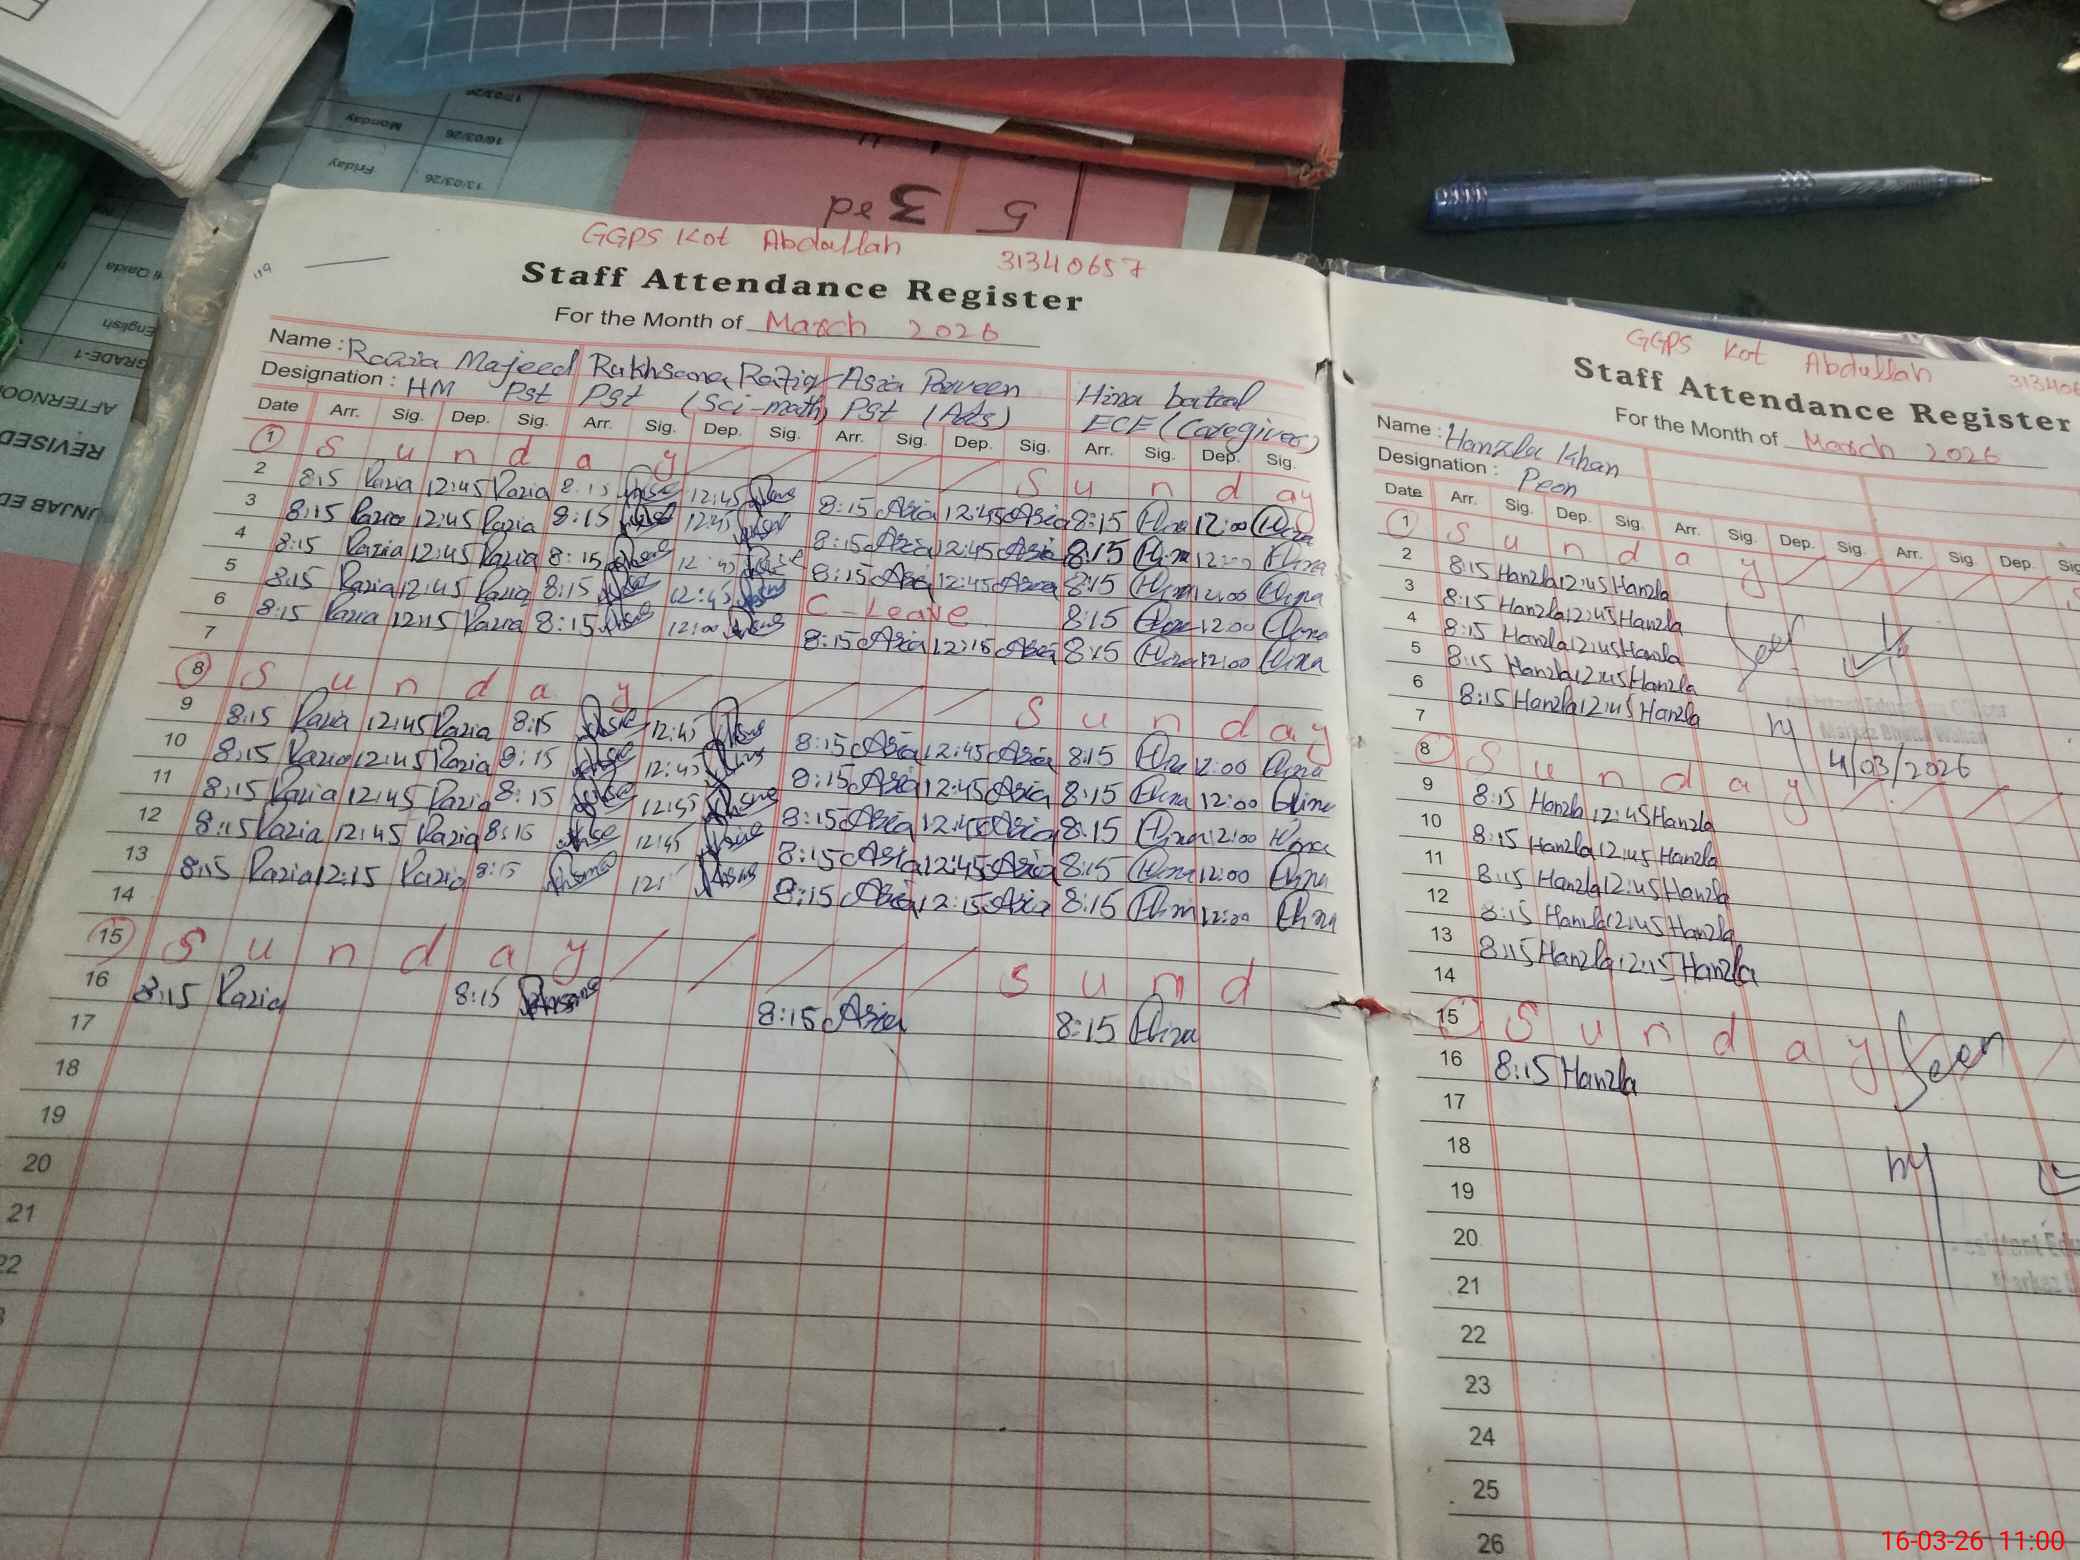 17/03/26
Monday 16/03/26
Friday 13/03/26
3rd 5
English
GRADE-1
AFTERNOON
REVISED
UNJAB ED
GGPS Kot Abdullah 31340657
Staff Attendance Register
For the Month of March 2026
Name : Razia Majeed Rukhsana Rafiq Asia Parveen Hina batool
Designation : HM Pst Pst (Sci-math) Pst (Arts) ECE (Caregiver)
Date Arr. Sig. Dep. Sig. Arr. Sig. Dep. Sig. Arr. Sig. Dep. Sig. Arr. Sig. Dep. Sig.
1 Sunday Sunday
2 8:15 Razia 12:45 Razia 8:15 12:45 8:15 Asia 12:45 Asia 8:15 Hina 12:00 Hina
3 8:15 Razia 12:45 Razia 8:15 12:45 8:15 Asia 12:45 Asia 8:15 Hina 12:00 Hina
4 8:15 Razia 12:45 Razia 8:15 12:45 8:15 Asia 12:45 Asia 8:15 Hina 12:00 Hina
5 8:15 Razia 12:45 Razia 8:15 12:45 C-Leave 8:15 Hina 12:00 Hina
6 8:15 Razia 12:15 Razia 8:15 12:00 8:15 Asia 12:15 Asia 8:15 Hina 12:00 Hina
7
8 Sunday Sunday
9 8:15 Razia 12:45 Razia 8:15 12:45 8:15 Asia 12:45 Asia 8:15 Hina 12:00 Hina
10 8:15 Razia 12:45 Razia 8:15 12:45 8:15 Asia 12:45 Asia 8:15 Hina 12:00 Hina
11 8:15 Razia 12:45 Razia 8:15 12:45 8:15 Asia 12:45 Asia 8:15 Hina 12:00 Hina
12 8:15 Razia 12:45 Razia 8:15 12:45 8:15 Asia 12:45 Asia 8:15 Hina 12:00 Hina
13 8:15 Razia 12:15 Razia 8:15 8:15 Asia 12:15 Asia 8:15 Hina 12:00 Hina
14
15 Sunday Sund
16 8:15 Razia 8:15 8:15 Asia 8:15 Hina
17
18
19
20
21
22
GGPS Kot Abdullah 313406
Staff Attendance Register
For the Month of March 2026
Name : Hanzla Khan
Designation : Peon
Date Arr. Sig. Dep. Sig. Arr. Sig. Dep. Sig. Arr. Sig. Dep. Sig
1 Sunday
2 8:15 Hanzla 12:45 Hanzla
3 8:15 Hanzla 12:45 Hanzla
4 8:15 Hanzla 12:45 Hanzla
5 8:15 Hanzla 12:45 Hanzla
6 8:15 Hanzla 12:45 Hanzla
7
8 Sunday 4/03/2026
9 8:15 Hanzla 12:45 Hanzla
10 8:15 Hanzla 12:45 Hanzla
11 8:15 Hanzla 12:45 Hanzla
12 8:15 Hanzla 12:45 Hanzla
13 8:15 Hanzla 12:15 Hanzla
14
15 Sunday Seen
16 8:15 Hanzla
17
18
19
20
21
22
23
24
25
26
16-03-26 11:00